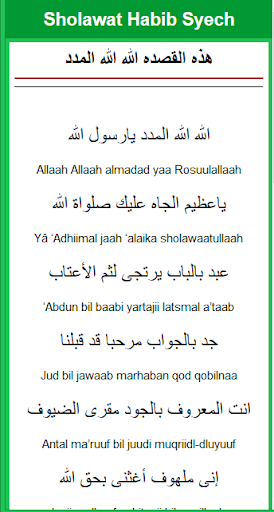 Sholawat Habib Syech
هذه القصده الله الله المدد
الله الله المدد يارسول الله
Allaah Allaah almadad yaa Rosuulallaah
ياعظيم الجاه عليك صلواة الله
Yâ ‘Adhiimal jaah ‘alaika sholawaatullaah
عبد بالباب يرتجى لثم الأعتاب
‘Abdun bil baabi yartajii latsmal a’taab
جد بالجواب مرحبا قد قبلنا
Jud bil jawaab marhaban qod qobilnaa
انت المعروف بالجود مقرى الضيوف
Antal ma’ruuf bil juudi muqriidl-dluyuuf
إنى ملهوف أغثنى بحق الله